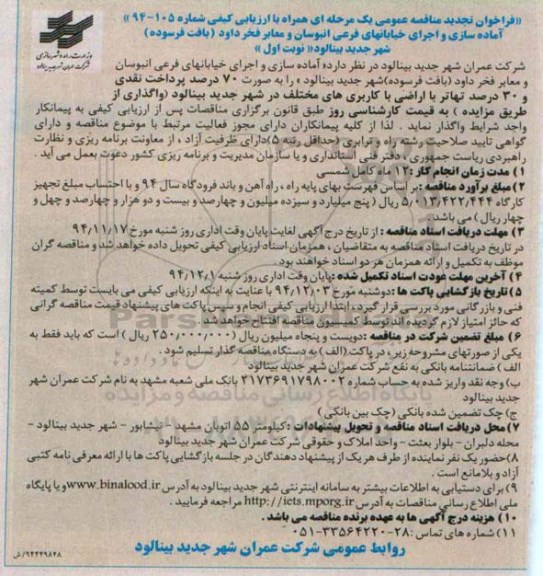 «فراخوان تجدید مناقصه عمومی یک مرحله ای همراه با ارزیابی کیفی شماره ۱۰۵-۹۴»
آماده سازی و اجرای خیابانهای فرعی اتبوسان و معابر فخر داود (بافت فرسوده)
شهر جدید بینالود« نوبت اول »
شرکت عمران شهر جدید بینالود در نظر دارد« آماده سازی و اجرای خیابانهای فرعی انبوسان
و معابر فخر داود (بافت فرسوده)شهر جدید بینالود » را به صورت ۷۰ درصد پرداخت نقدی
و ۳۰ درصد تهاتر با اراضی با کاربری های مختلف در شهر جدید بینالود (واگذاری از
طریق مزایده ) به قیمت کارشناسی روز طبق قانون برگزاری مناقصات پس از ارزیابی کیفی به پیمانکار
واجد شرایط واگذار نماید . لذا از کلیه پیمانکاران دارای مجوز فعالیت مرتبط با موضوع مناقصه و دارای
گواهی تایید صلاحیت رشته راه و ترابری (حداقل رتبه ۵)دارای ظرفیت آزاد ، از معاونت برنامه ریزی و نظارت
راهبردی ریاست جمهوری ، دفتر فنی استانداری و یا سازمان مدیریت و برنامه ریزی کشور دعوت بعمل می آید .
۱) مدت زمان انجام کار :۱۲ ماه کامل شمسی
۲)مبلغ برآورد مناقصه :بر اساس فهرست بهای پایه راه ، راه آهن و باند فرودگاه سال ۹۴ و با احتساب مبلغ تجهیز
کارگاه ۵/۰۱۳/۴۲۲/۴۴۴ ریال ( پنج میلیارد و سیزده میلیون و چهارصد و بیست و دو هزار و چهارصد و چهل و
چهار ریال ) می باشد.
۳) مهلت دریافت اسناد مناقصه : از تاریخ درج آگهی لغایت پایان وقت اداری روز شنبه مورخ ۹۴/۱۱/۱۷
در تاریخ دریافت اسناد مناقصه به متقاضیان ، همزمان اسناد ارزیابی کیفی تحویل داده خواهد شد و مناقصه گران
موظف به تکمیل و ارائه همزمان هر دو اسناد خواهند بود
۴) آخرین مهلت عودت اسناد تکمیل شده :پایان وقت اداری روز شنبه ۹۴/۱۲/۱
۵) تاریخ بازگشایی پاکت ها :دوشنبه مورخ ۹۴/۱۲/۰۳ با عنایت به اینکه ارزیابی کیفی می بایست توسط کمیته
فنی و بازرگانی مورد بررسی قرار گیرد ، ابتدا ارزیابی کیفی انجام و سپس پاکت های پیشنهاد قیمت مناقصه گرانی
که حائز امتیاز لازم گردیده اند توسط کمیسیون مناقصه افتتاح خواهد شد .
۶) مبلغ تضمین شرکت در مناقصه :دویست و پنجاه میلیون ریال (۲۵۰/۰۰۰/۰۰۰ ریال ) است که باید فقط به
یکی از صورتهای مشروحه زیر ، در پاکت (الف ) به دستگاه مناقصه گذار تسلیم شود .
الف ) ضمانتنامه بانکی به نفع شرکت عمران شهر جدید بینالود
ب) وجه نقد واریز شده به حساب شماره ۲۱۷۳۶۹۱۷۹۸۰۰۲ بانک ملی شعبه مشهد به نام شرکت عمران شهر
جدید بینالود
ج) چک تضمین شده بانکی (چک بین بانکی )
۷) محل دریافت اسناد مناقصه و تحویل پیشنهادات :کیلومتر ۵۵ اتوبان مشهد - نیشابور - شهر جدید بینالود -
محله دلبران - بلوار بعثت - واحد املاک و حقوقی شرکت عمران شهر جدید بینالود
۸)حضور یک نفر نماینده از طرف هر یک از پیشنهاد دهندگان در جلسه بازگشایی پاکت ها با ارائه معرفی نامه کتبی
آزاد و بلامانع است .
۹) برای دستیابی به اطلاعات بیشتر به سامانه اینترنتی شهر جدید بینالود به آدرس www.binalood.ir و یا پایگاه
ملی اطلاع رسانی مناقصات به آدرس http://iets.mporg.ir مراجعه فرمایید .
۱۰) هزینه درج آگهی ها به عهده برنده مناقصه می باشد .
۱۱) شماره های تماس :۲۸-۳۳۵۶۴۲۲۰-۰۵۱
روابط عمومی شرکت عمران شهر جدید بینالود
۹۴۴۴۹۸۴۸/ش